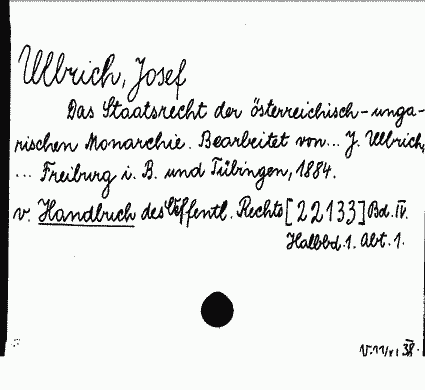 Ullbrich, Josef
Das Staatsrecht der österreichisch-unga-
rischen Monarchie. Bearbeitet von... J. Ullbrich,
... Freiburg i. B. und Tübingen, 1884.
v. Handbuch des Öffentl. Rechts [22133] Bd. IV.
Halbbd. 1. Abt. 1.